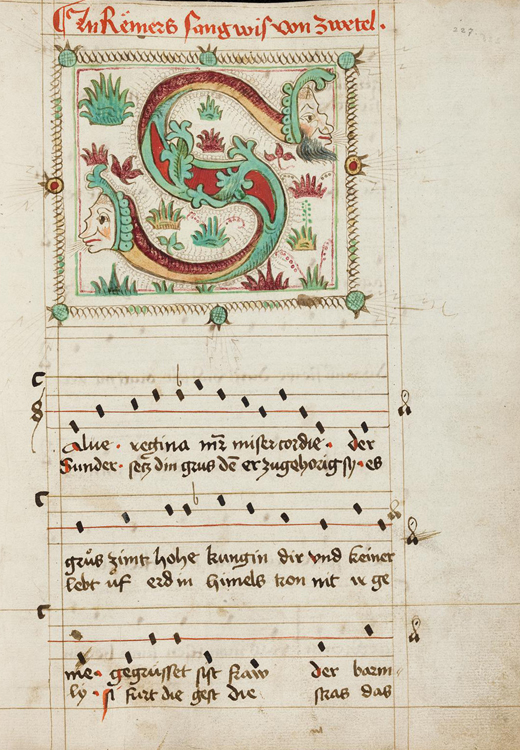 In Römers sang wis von zwetel.
Salue · regina mr̄ misericordie · der
Sunder · setz din grus dē er zugehorig sy · es
grůs zimt hohe kungin dir vnd keiner
lebt uf erd in himels tron nit ir ge
me · gegrüsset sist fraw der barm
ly · si furt die gest die stras das